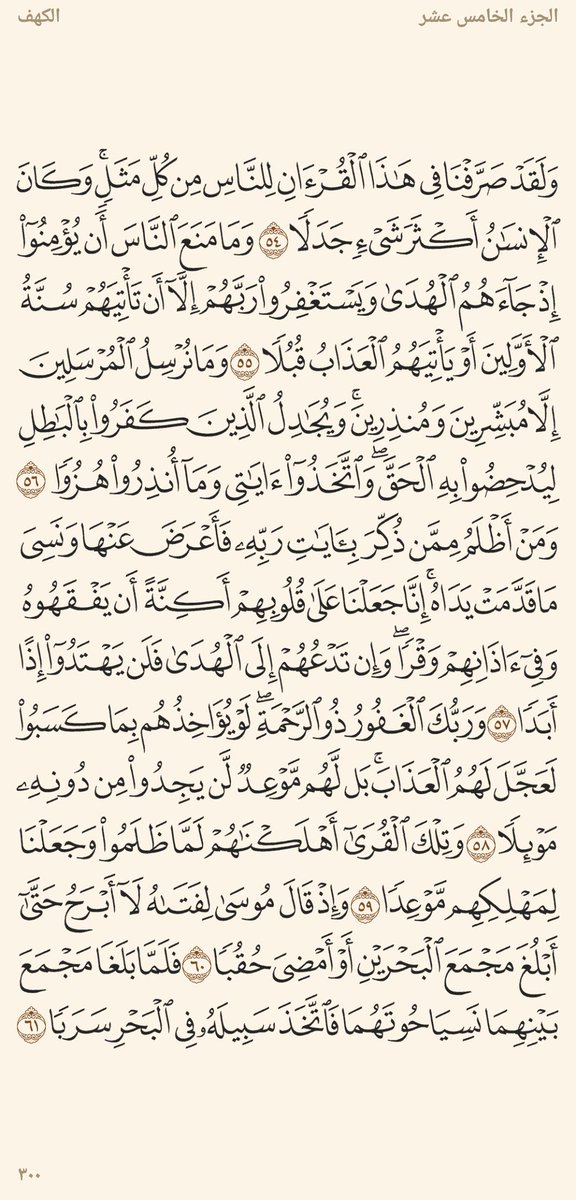 الجزء الخامس عشر
الكهف
وَلَقَدْ صَرَّفْنَا فِى هَـٰذَا ٱلْقُرْءَانِ لِلنَّاسِ مِن كُلِّ مَثَلٍۚ وَكَانَ
ٱلْإِنسَـٰنُ أَكْثَرَ شَىْءٍ جَدَلًا ٥٤ وَمَا مَنَعَ ٱلنَّاسَ أَن يُؤْمِنُوٓا۟
إِذْ جَآءَهُمُ ٱلْهُدَىٰ وَيَسْتَغْفِرُوا۟ رَبَّهُمْ إِلَّآ أَن تَأْتِيَهُمْ سُنَّةُ
ٱلْأَوَّلِينَ أَوْ يَأْتِيَهُمُ ٱلْعَذَابُ قُبُلًا ٥٥ وَمَا نُرْسِلُ ٱلْمُرْسَلِينَ
إِلَّا مُبَشِّرِينَ وَمُنذِرِينَۚ وَيُجَـٰدِلُ ٱلَّذِينَ كَفَرُوا۟ بِٱلْبَـٰطِلِ
لِيُدْحِضُوا۟ بِهِ ٱلْحَقَّۖ وَٱتَّخَذُوٓا۟ ءَايَـٰتِى وَمَآ أُنذِرُوا۟ هُزُوًا ٥٦
وَمَنْ أَظْلَمُ مِمَّن ذُكِّرَ بِـَٔايَـٰتِ رَبِّهِۦ فَأَعْرَضَ عَنْهَا وَنَسِىَ
مَا قَدَّمَتْ يَدَاهُۚ إِنَّا جَعَلْنَا عَلَىٰ قُلُوبِهِمْ أَكِنَّةً أَن يَفْقَهُوهُ
وَفِىٓ ءَاذَانِهِمْ وَقْرًاۖ وَإِن تَدْعُهُمْ إِلَى ٱلْهُدَىٰ فَلَن يَهْتَدُوٓا۟ إِذًا
أَبَدًا ٥٧ وَرَبُّكَ ٱلْغَفُورُ ذُو ٱلرَّحْمَةِۖ لَوْ يُؤَاخِذُهُم بِمَا كَسَبُوا۟
لَعَجَّلَ لَهُمُ ٱلْعَذَابَۚ بَل لَّهُم مَّوْعِدٌ لَّن يَجِدُوا۟ مِن دُونِهِۦ
مَوْئِلًا ٥٨ وَتِلْكَ ٱلْقُرَىٰٓ أَهْلَكْنَـٰهُمْ لَمَّا ظَلَمُوا۟ وَجَعَلْنَا
لِمَهْلِكِهِم مَّوْعِدًا ٥٩ وَإِذْ قَالَ مُوسَىٰ لِفَتَىٰهُ لَآ أَبْرَحُ حَتَّىٰٓ
أَبْلُغَ مَجْمَعَ ٱلْبَحْرَيْنِ أَوْ أَمْضِىَ حُقُبًا ٦٠ فَلَمَّا بَلَغَا مَجْمَعَ
بَيْنِهِمَا نَسِيَا حُوتَهُمَا فَٱتَّخَذَ سَبِيلَهُۥ فِى ٱلْبَحْرِ سَرَبًا ٦١
٣٠٠